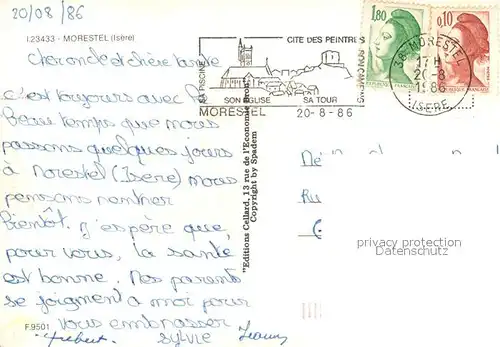 20/08/86
I.23433 - MORESTEL (Isère)
Cher oncle et chère tante
c'est toujours avec le
Beau temps que nous
passons quelques jours
à Morestel (Isere) nous
pensons rentrer
Bientôt. J'espère que,
pour vous, la santé
est bonne. Mes parents
se joignent à moi pour
vous embrasser
SYLVIE
F.9501
"Editions Cellard, 13 rue de l'Economie Bron"
Copyright by Spadem
CITE DES PEINTRES
SA PISCINE
SON EGLISE SA TOUR
MORESTEL 20-8-86
1,80
0,10
38 MORESTEL
17H
20-8
1986
ISERE
privacy protection